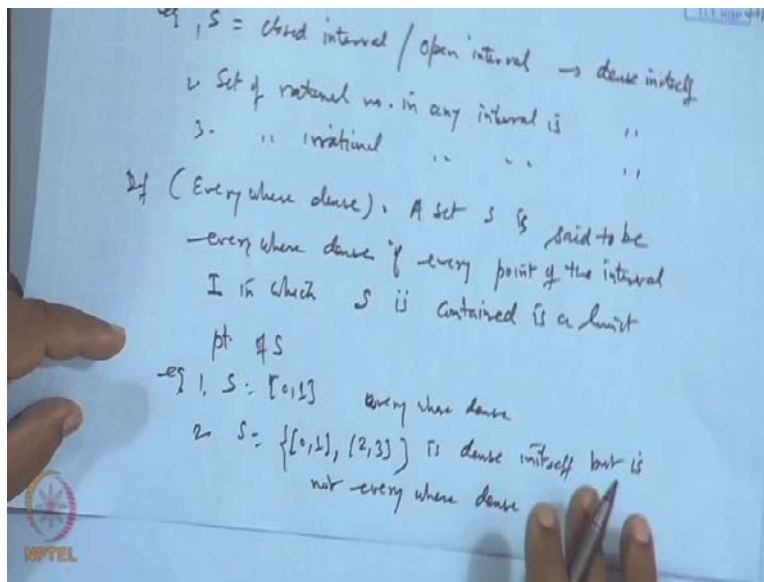 eg 1, S = closed interval / open interval → dense initself
2 Set of rational no. in any interval is "
3. " irrational " " "
Def (Every where dense). A Set S is said to be
every where dense if every point of the interval
I in which S is contained is a limit
pt. of S
eg 1, S = [0,1] every where dense
2 S = {[0,1], (2,3]} is dense initself but is
not every where dense
NPTEL